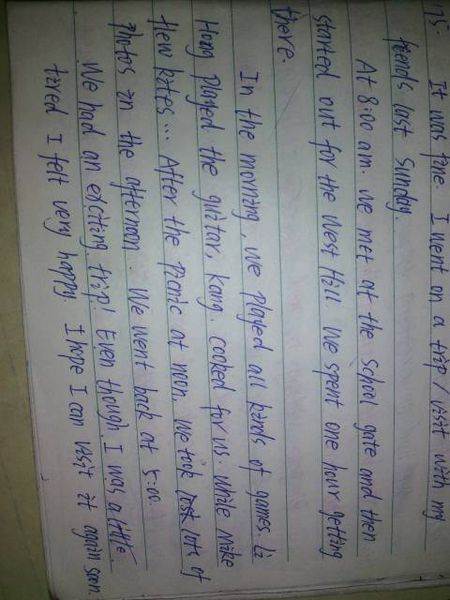 75. It was fine I went on a trip / visit with my
friends last Sunday.
At 8:00 am. we met at the School gate and then
started out for the West Hill. We spent one hour getting
there.
In the morning, we played all kinds of games. Li
Hong played the guitar, kang. cooked for us. while Mike
flew kites... After the Picnic at noon. We took lots of
Photos in the afternoon. We went back at 5:00.
We had an exciting trip! Even though I was a little
tired I felt very happy. I hope I can visit it again soon.